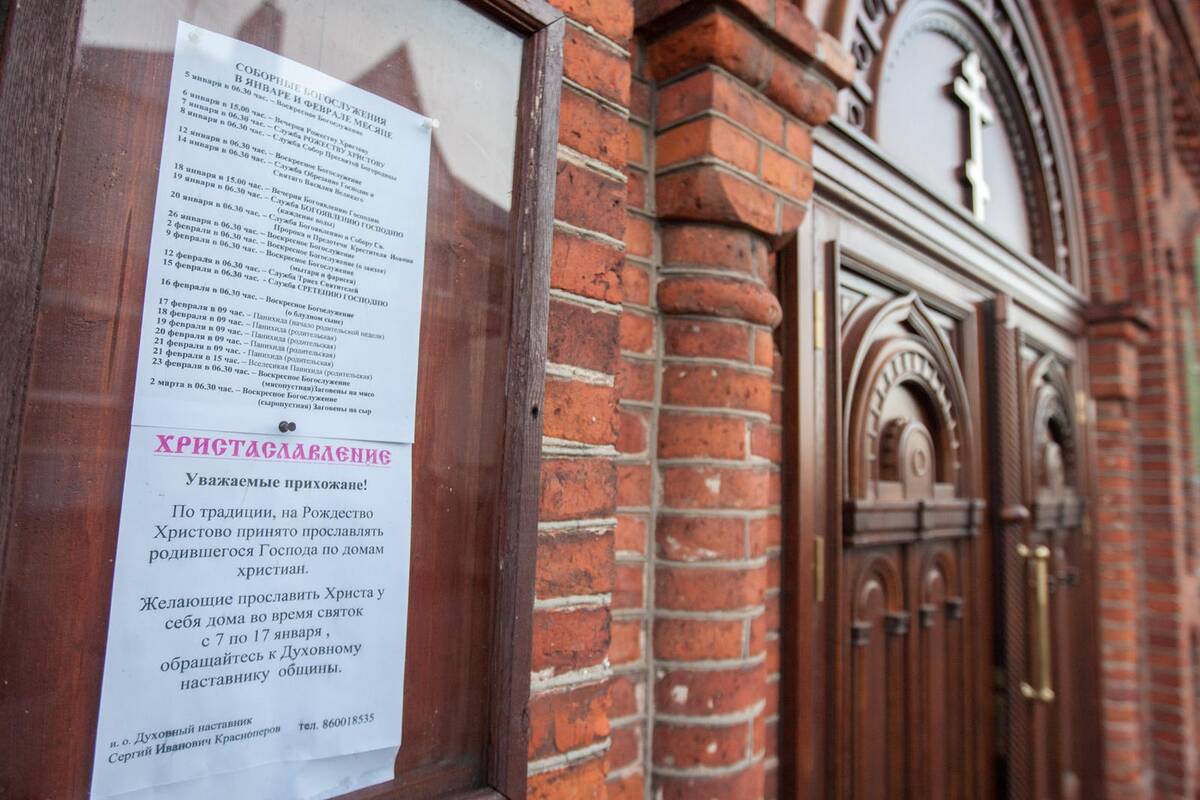 СОБОРНЫЕ БОГОСЛУЖЕНИЯ
В ЯНВАРЕ И ФЕВРАЛЕ МЕСЯЦЕ
5 января в 06.30 час. – Воскресное Богослужение
6 января в 15.00 час. – Вечерня Рожеству Христову
7 января в 06.30 час. – Служба РОЖЕСТВУ ХРИСТОВУ
8 января в 06.30 час. – Служба Собор Пресвятой Богородицы
12 января в 06.30 час. – Воскресное Богослужение
14 января в 06.30 час. – Служба Обрезание Господне и
Святаго Василия Великаго
18 января в 15.00 час. – Вечерня Богоявлению Господню
19 января в 06.30 час. – Служба БОГОЯВЛЕНИЮ ГОСПОДНЮ
(каждение воды)
20 января в 06.30 час. – Служба Богоявлению и Собору Св.
Пророка и Предотечи Крестителя Иоанна
26 января в 06.30 час. – Воскресное Богослужение
2 февраля в 06.30 час. – Воскресное Богослужение (о закхеи)
9 февраля в 06.30 час. – Воскресное Богослужение
(мытаря и фарисея)
12 февраля в 06.30 час. – Служба Трием Святителей
15 февраля в 06.30 час. - Служба СРЕТЕНИЮ ГОСПОДНЮ
16 февраля в 06.30 час. – Воскресное Богослужение
(о блудном сыне)
17 февраля в 09 час. – Панихида (начало родительской недели)
18 февраля в 09 час. – Панихида (родительская)
19 февраля в 09 час. – Панихида (родительская)
20 февраля в 09 час. – Панихида (родительская)
21 февраля в 09 час. – Панихида (родительская)
21 февраля в 15 час. – Вселеская Панихида (родительская)
23 февраля в 06.30 час. – Воскресное Богослужение
(мясопустная) Заговены на мясо
2 марта в 06.30 час. – Воскресное Богослужение
(сыропустная) Заговены на сыр
ХРИСТАСЛАВЛЕНИЕ
Уважаемые прихожане!
По традиции, на Рождество
Христово принято прославлять
родившегося Господа по домам
христиан.
Желающие прославить Христа у
себя дома во время святок
с 7 по 17 января ,
обращайтесь к Духовному
наставнику общины.
и. о. Духовный наставник
Сергий Иванович Красноперов тел. 860018535